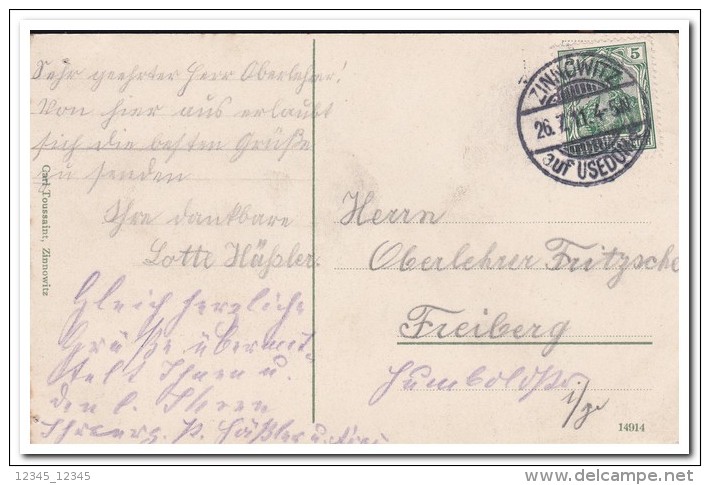 Sehr geehrter Herr Oberlehrer!
Von hier aus erlaubt
sich die besten Grüße
zu senden
Ihre dankbare
Lotte Häßler.
Gleich herzliche
Grüße übermit-
telt Ihnen u.
den l. Ihren
P. Häßler u. Frau
Carl Toussaint, Zinnowitz
5
ZINNOWITZ
26.7.11.4-5N
auf USEDOM
Herrn
Oberlehrer Fritzsche
Freiberg
Humboldtstr.
14914
12345_12345
www.delcampe.net